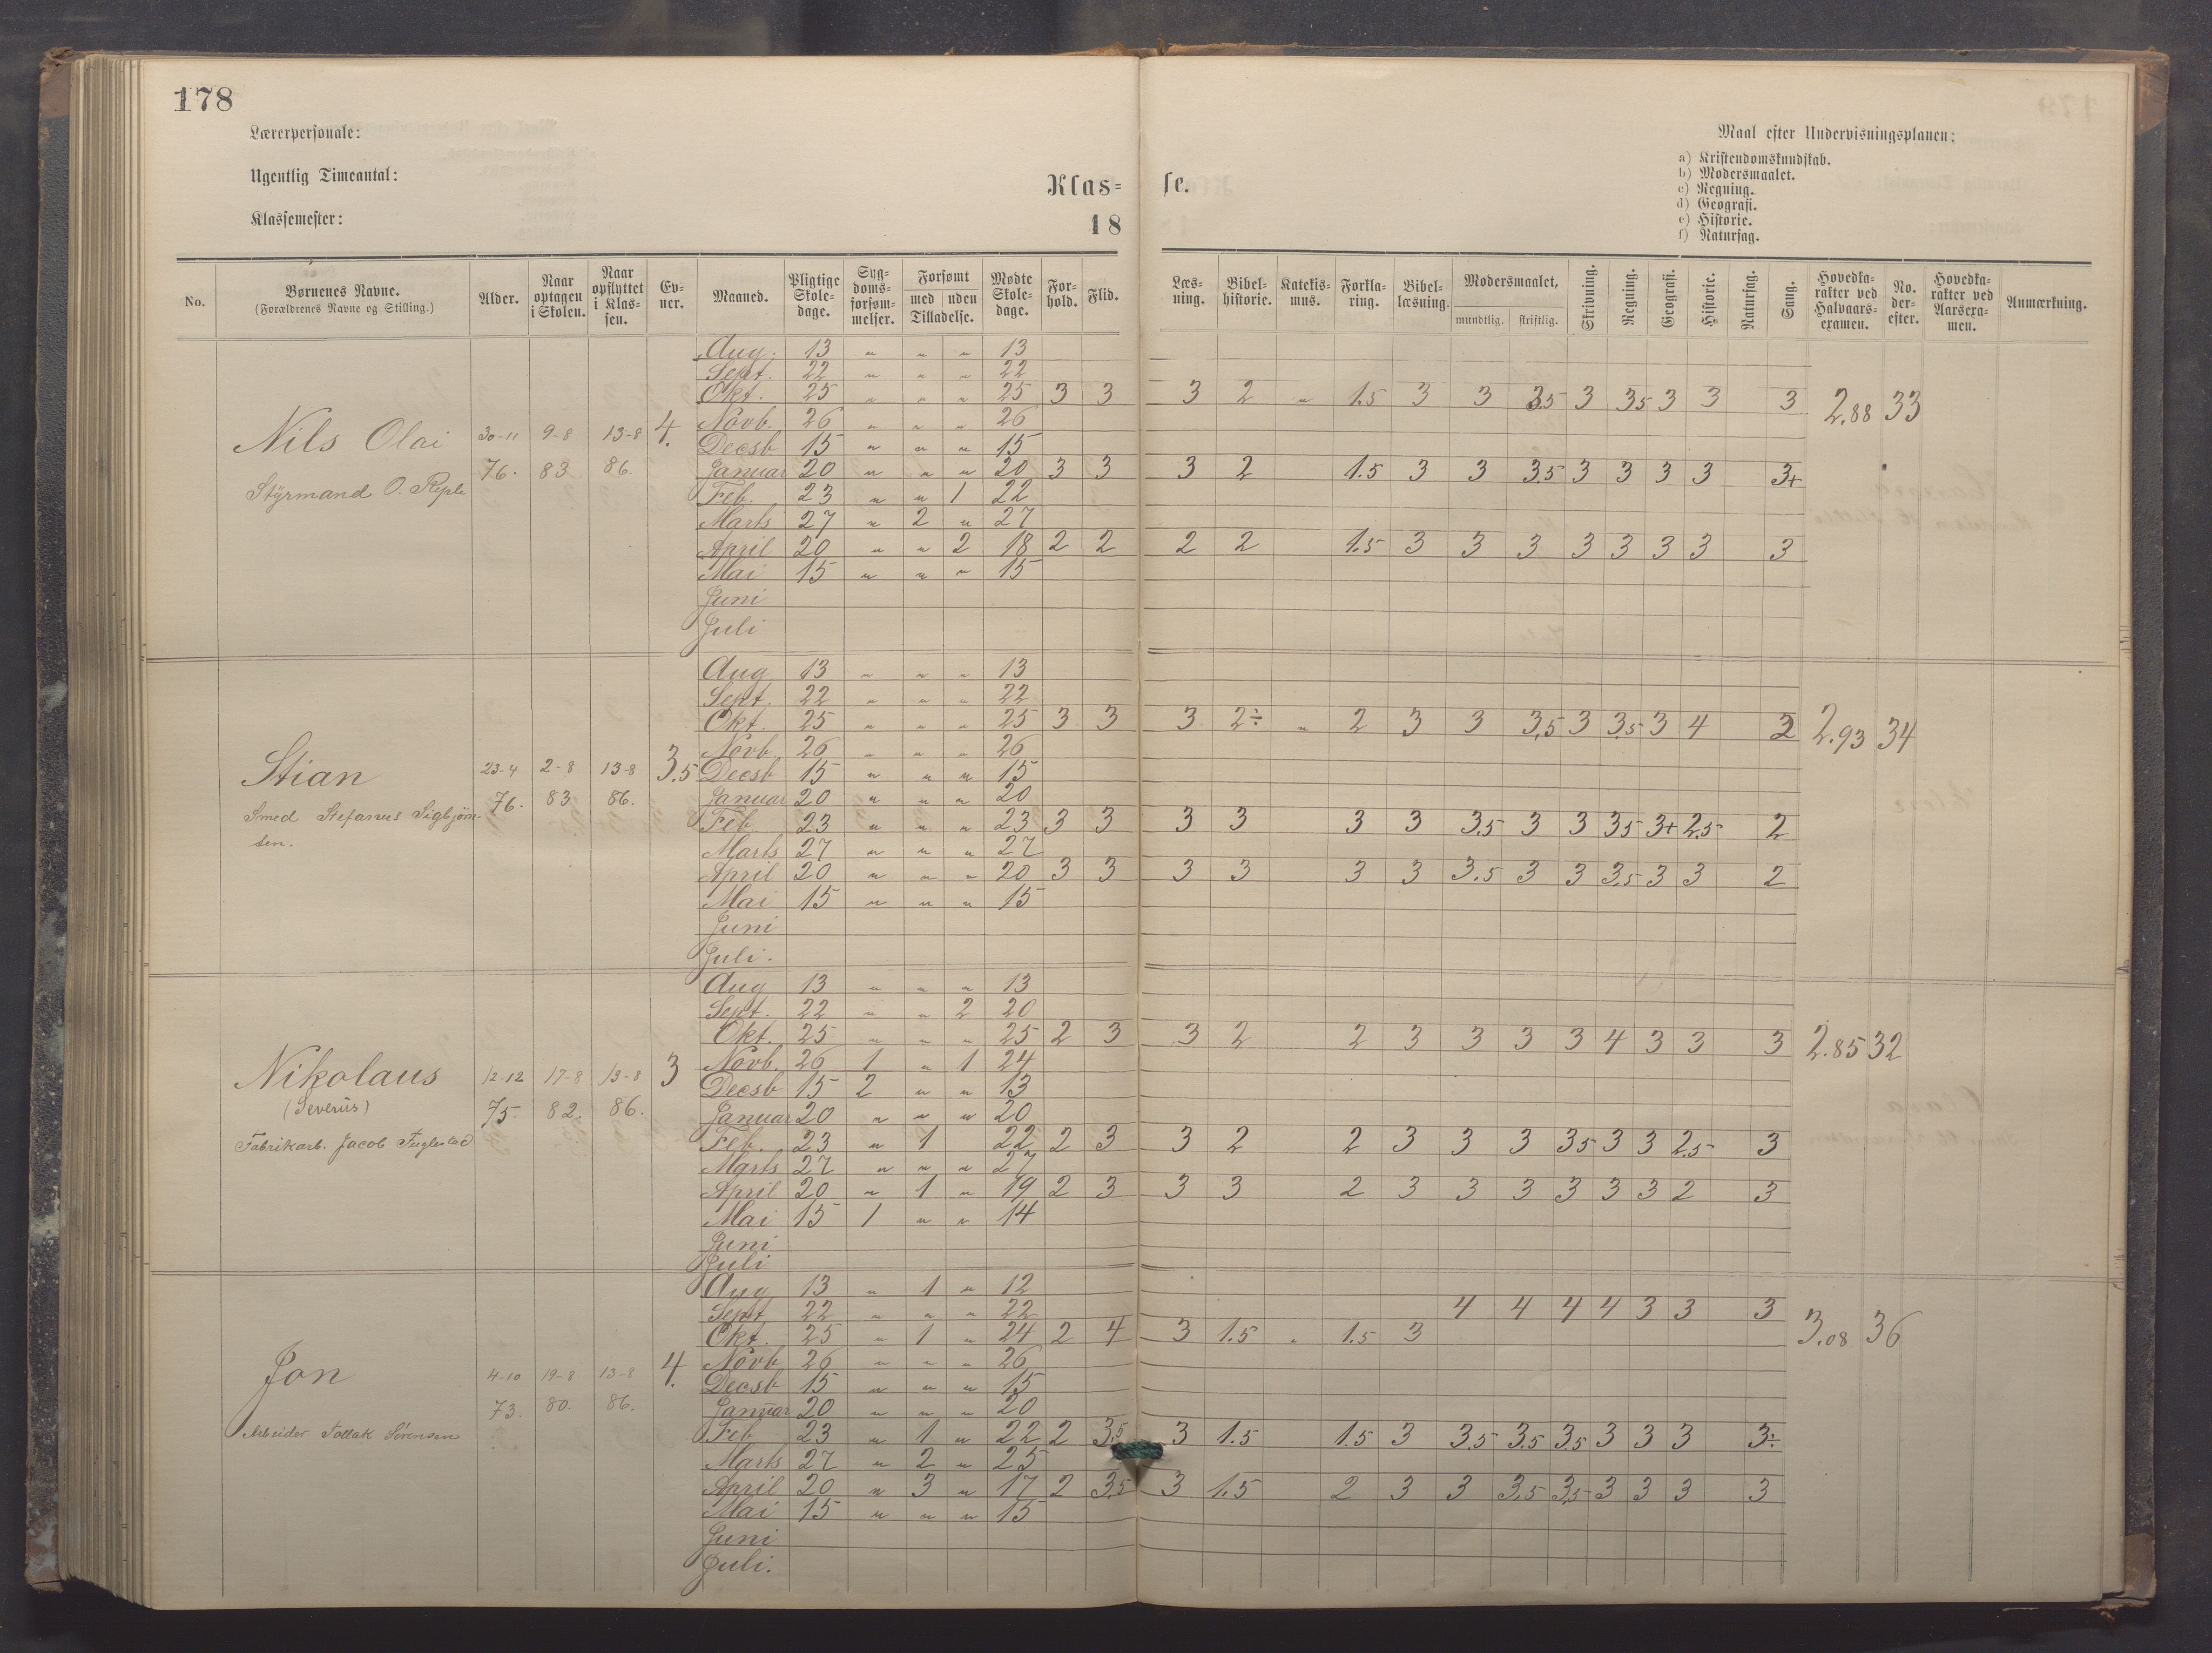 178
Lærerpersonale:
Ugentlig Timeantal:
Klassemester:
Klas=
18
se.
Maal efter Undervisningsplanen:
a) Kristendomskundskab.
b) Modersmaalet.
c) Regning.
d) Geografi.
e) Historie.
f) Naturfag.
No. Børnenes Navne. (Forældrenes Navne og Stilling.) Alder. Naar optagen i Skolen. Naar opflyttet i Klas=sen. Ev=ner. Maaned. Pligtige Skole=dage. Syg=doms=forsøm=melser. Forsømt med uden Tilladelse. Mødte Skole=dage. For=hold. Flid. Læs=ning. Bibel=historie. Katekis=mus. Forkla=ring. Bibel=læsning. Modersmaalet, mundtlig. skriftlig. Skrivning. Regning. Geografi. Historie. Naturfag. Sang. Hovedka=rakter ved Halvaars=examen. No. der=efter. Hovedka=rakter ved Aarsexa=men. Anmærkning.
Aug. 13 " " " 13
Sept. 22 " " " 22
Okt. 25 " " " 25 3 3 3 2 " 1.5 3 3 3.5 3 3.5 3 3 3 2.88 33
Novb. 26 " " " 26
Nils Olai 30-11 9-8 13-8 4.
Decsb 15 " " " 15
76. 83 86. Januar 20 " " " 20 3 3 3 2 1.5 3 3 3.5 3 3 3 3 3+
Styrmand O.
Feb. 23 " " 1 22
Marts 27 " 2 " 27
April 20 " " 2 18 2 2 2 2 1.5 3 3 3 3 3 3 3 3
Mai 15 " " " 15
Juni
Juli
Aug 13 " " " 13
Sept. 22 " " " 22
Okt. 25 " " " 25 3 3 3 2÷ " 2 3 3 3,5 3 3.5 3 4 2 2.93 34
Novb 26 " " " 26
Stian 23-4 2-8 13-8 3.5 Decsb 15 " " " 15
76. 83 86. Januar 20 " " " 20
Smed Stefanus Sigbjørn-
sen.
Feb. 23 " " " 23 3 3 3 3 3 3 3.5 3 3 3.5 3+ 2.5 2
Marts 27 " " " 27
April 20 " " " 20 3 3 3 3 3 3 3.5 3 3 3.5 3 3 2
Mai 15 " " " 15
Juni
Juli.
Aug 13 " " " 13
Sept. 22 " " 2 20
Okt. 25 " " " 25 2 3 3 2 2 3 3 3 3 4 3 3 3 2.85 32
Novb. 26 1 " 1 24
Nikolaus 12-12 17-8 13-8 3
Decsb 15 2 " " 13
(Severüs) 75. 82. 86.
Januar 20 " " " 20
Fabrikarb. Jacob Fuglestad
Feb. 23 " 1 22 2 3 3 2 2 3 3 3 3.5 3 3 2.5 3
Marts 27 " " " 27
April 20 " 1 " 19 2 3 3 3 2 3 3 3 3 3 3 2 3
Mai 15 1 " " 14
Juni
Juli
Aug 13 " 1 " 12
Sept 22 " " " 22 4 4 4 4 3 3 3
Okt. 25 " 1 " 24 2 4 3 1.5 " 1.5 3 3.08 36
Novb 26 " " " 26
Jon 4-10 19-8 13-8 4.
Decsb 15 " " " 15
73. 80. 86. Januar 20 " " " 20
Arbeider Tollak Sørensen
Feb 23 " 1 " 22 2 3,5 3 1.5 1.5 3 3.5 3.5 3.5 3 3 3 3÷
Marts 27 " 2 " 25
April 20 " 3 " 17 2 3,5 3 1.5 2 3 3 3,5 3,5 3 3 3 3
Mai 15 " " " 15
Juni
Juli.